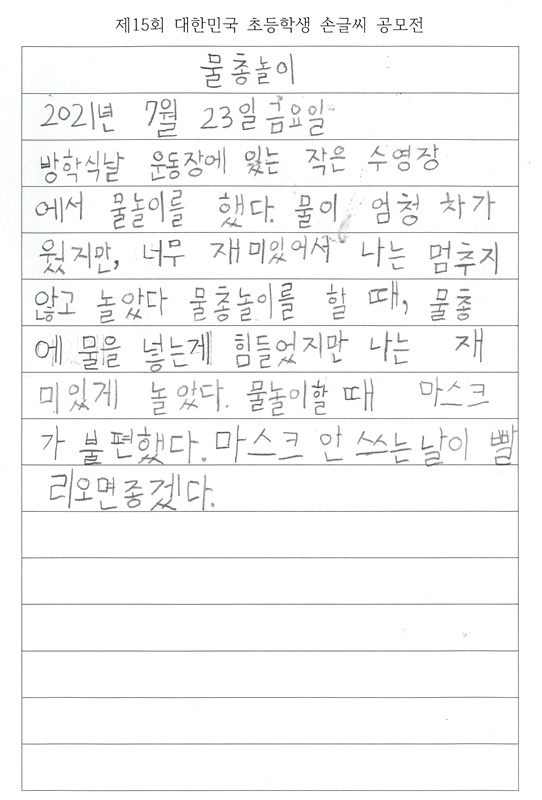 제15회 대한민국 초등학생 손글씨 공모전
물총놀이
2021년 7월 23일 금요일
방학식날 운동장에 있는 작은 수영장
에서 물놀이를 했다. 물이 엄청 차가
웠지만, 너무 재미있어서 나는 멈추지
않고 놀았다 물총놀이를 할 때, 물총
에 물을 넣는게 힘들었지만 나는 재
미있게 놀았다. 물놀이할 때 마스크
가 불편했다. 마스크 안 쓰는 날이 빨
리오면좋겠다.